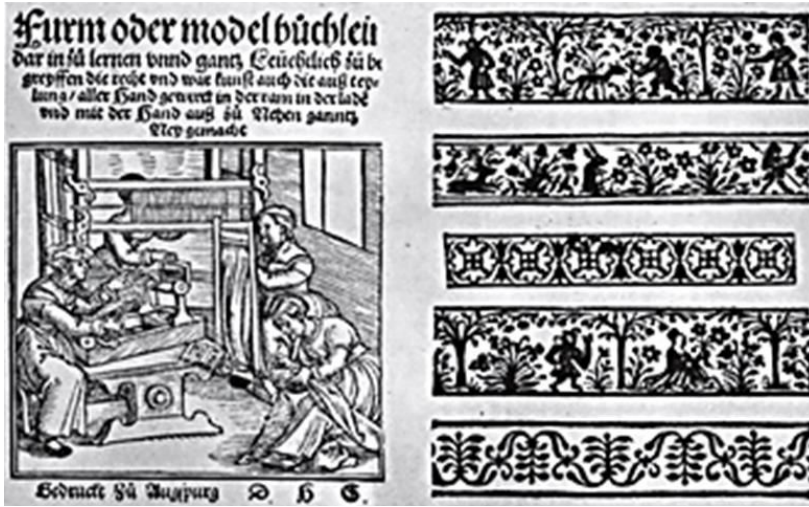 Furm oder model büchlein
dar in zů lernen vnnd gantz Leüchtlich zů be
greyffen die rechte vnd war kunst auch die auß tey-
lung / aller Hand gewerck in der ram in der lade
vnd mit der Hand auß zů Nehen ganntz
Ney gemacht
Gedruckt Zů Augspurg D. H. S.